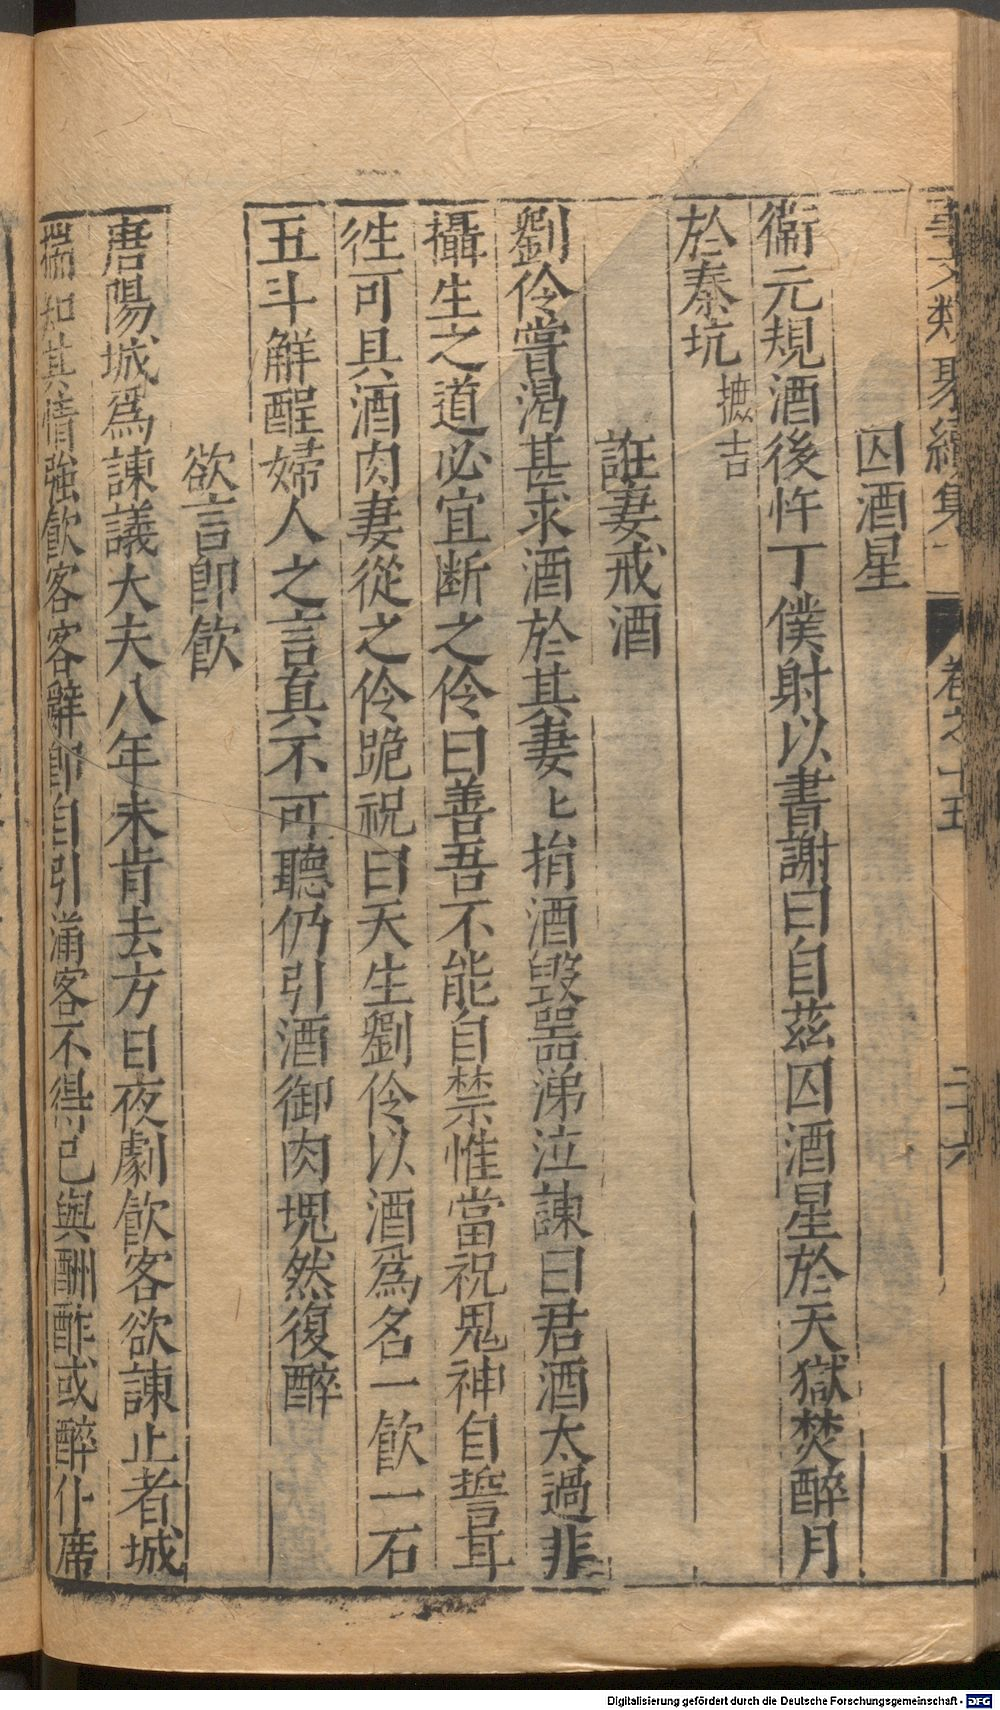 事文類聚續集 卷之十五 二十六
囚酒星
衞元規酒後忤丁僕射以書謝曰自茲囚酒星於天獄焚醉月
於秦坑摭言
誑妻戒酒
劉伶嘗渴甚求酒於其妻〻捐酒毀噐涕泣諫曰君酒太過非
攝生之道必宜斷之伶曰善吾不能自禁惟當祝鬼神自誓耳
徃可具酒肉妻從之伶跪祝曰天生劉伶以酒爲名一飮一石
五斗解酲婦人之言眞不可聽仍引酒御肉塊然復醉
欲言卽飮
唐陽城爲諫議大夫八年未肯去方日夜劇飮客欲諫止者城
揣知其情強飮客客辭卽自引滿客不得已與酬酢或醉仆席
Digitalisierung gefördert durch die Deutsche Forschungsgemeinschaft - DFG